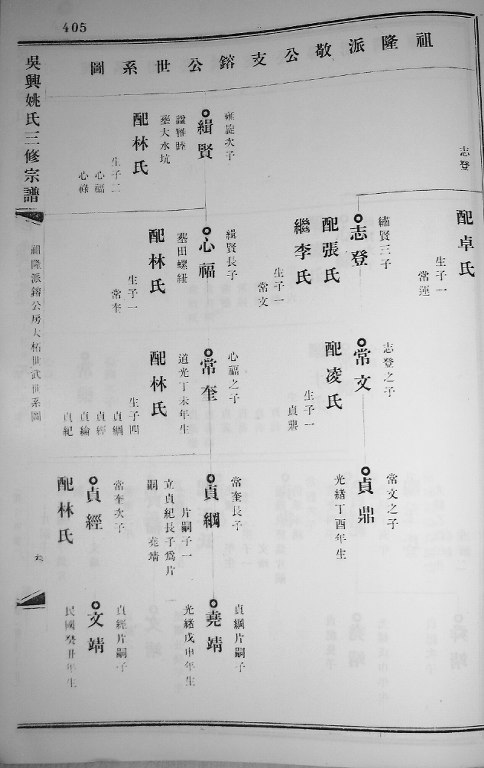 405
祖隆派敬公支鎔公世系圖
吳興姚氏三修宗譜
祖隆派鎔公房大柘世武世系圖
志登
配卓氏
生子一
常運
三子
志登
配張氏
繼李氏
生子一
常文
志登之子
常文
配凌氏
生子一
貞鼎
常文之子
貞鼎
光緒丁酉年生
次子
緝賢
諡醇睦
塟大水坑
配林氏
生子二
心福
心祿
緝賢長子
心福
塟田螺紐
配林氏
生子一
常奎
心福之子
常奎
道光丁未年生
配林氏
生子四
貞綱
貞經
貞綸
貞紀
常奎長子
貞綱
片嗣子一
立貞紀長子爲片
嗣 堯靖
貞綱片嗣子
堯靖
光緒戊申年生
常奎次子
貞經
配林氏
貞經片嗣子
文靖
民國癸廿年生